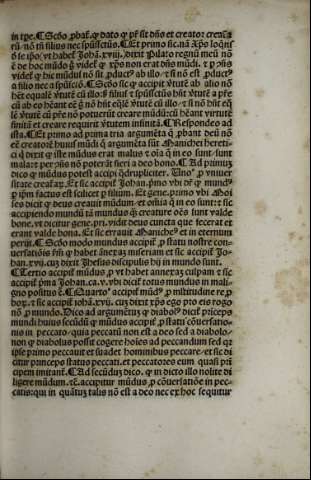 in tpe. ¶ Scḋo ꝓbaƚ. ꝙ dato ꝙ pr̄ sit dn̄s et creator creatu
rū. nō tn̄ filius nec sp̄ussctūs. ¶ Et primo sic. nā Xp̄s loqn̄s
ō se ipo. vt habeƚ Johā. xviii. dixit Pilato regnū meū nō
ē de hoc mūdo g̊ videƚ ꝙ xp̄s non erat dn̄s mūdi. et p ↄn̄s
videƚ ꝙ hic mūdus nō sit ꝓductꝰ ab illo. et si nō est ꝓductꝰ
a filio nec a spūsctō. ¶ Scḋo sic ꝙ accipit v̓tutē ab alio nō
h̄et equalē v̓tutē cū illo. si filius et sp̄ussctūs h̄n̄t v̓tutē a pr̄e
cū ab eo h̄eant eē g̊ nō h̄n̄t eq̄lē v̓tutē cū illo. et si nō h̄n̄t eq̄
lē v̓tutē cū pr̄e nō potuerūt creare mūdū: cū h̄eant virtutē
finitā et creare requirit v̓tutem infinitā. ¶ Respondeo ad
ista. ¶ Et primo ad prima tria argumēta q̄ ꝓbant deū nō
eē creatorē huiꝰ mūdi q̄ argumēta sūt Manichei hereti
ci ꝙ dixit ꝙ iste mūdus erat malus et oīa q̄ in eo sunt sunt
mala: et per ↄn̄s nō poterāt fieri a deo bono. ¶ Ad primuz
dico ꝙ mūdus potest accipi q̄drupliciter. Unoꝰ p vniuer
sitate creaƚaꝝ. Et sic accipiƚ Johan. pmo vbi dr̄ ꝙ mundꝰ
p ipm̄ factus est scilicet p filium. Et gene. primo vbi Moi
ses dicit ꝙ deus creauit mūdum. et oīuia q̄ in eo sunt: et sic
accipiendo mundū tā mundus q̄ȝ creature oēs sunt valde
bone. vt dicitur gene. pri. vidit deus cuncta que fecerat et
erant valde bona. Et sic errauit Manicheꝰ et in eternum
perijt. ¶ Scḋo modo mundus accipiƚ p statu nostre con-
uersatiōis fm̄ ꝙ habeƚ ānexaȝ miseriam et sic accipiƚ Joh
an. xvij. cuȝ dixit Jhesus discipulis hij in mundo sunt.
¶ Tertio accipiƚ mūdus ꝓ vt habet annexaȝ culpam et sic
accipiƚ pma Johan. ca. v. vbi dicit̄ totus mundus in mali-
gno positus ē. ¶ Quartoꝰ accipiƚ mūdꝰ ꝓ mltitudine re ꝓ
boꝝ. et sic accipiƚ iohā. xvij. cuȝ dixit xp̄s ego pro eis rogo
nō ꝓ mundo. Dico ad argumētuȝ ꝙ diabolꝰ diciƚ pr̄iceps
mundi huius secūdū ꝙ mūdus accipiƚ ꝓ statu cōuersatio-
nis in peccato. quia peccatū non est a deo sed a diabolo.
non ꝙ diabolus possit cogere hoīes ad peccandum sed qꝛ
ipse primo peccauit et suadet hominibus peccare. et sic di
citur princeps status peccati. et peccatores eum quasi pri
cipem imitant̄. ¶ Ad secūduȝ dico. ꝙ in dicto illo nolite di
ligere mūdum. ꞇc̄. accipitur mūdus ꝓ cōuersatiōe in pec-
catis: qui in quātuȝ talis nō est a deo nec ex hoc sequitur